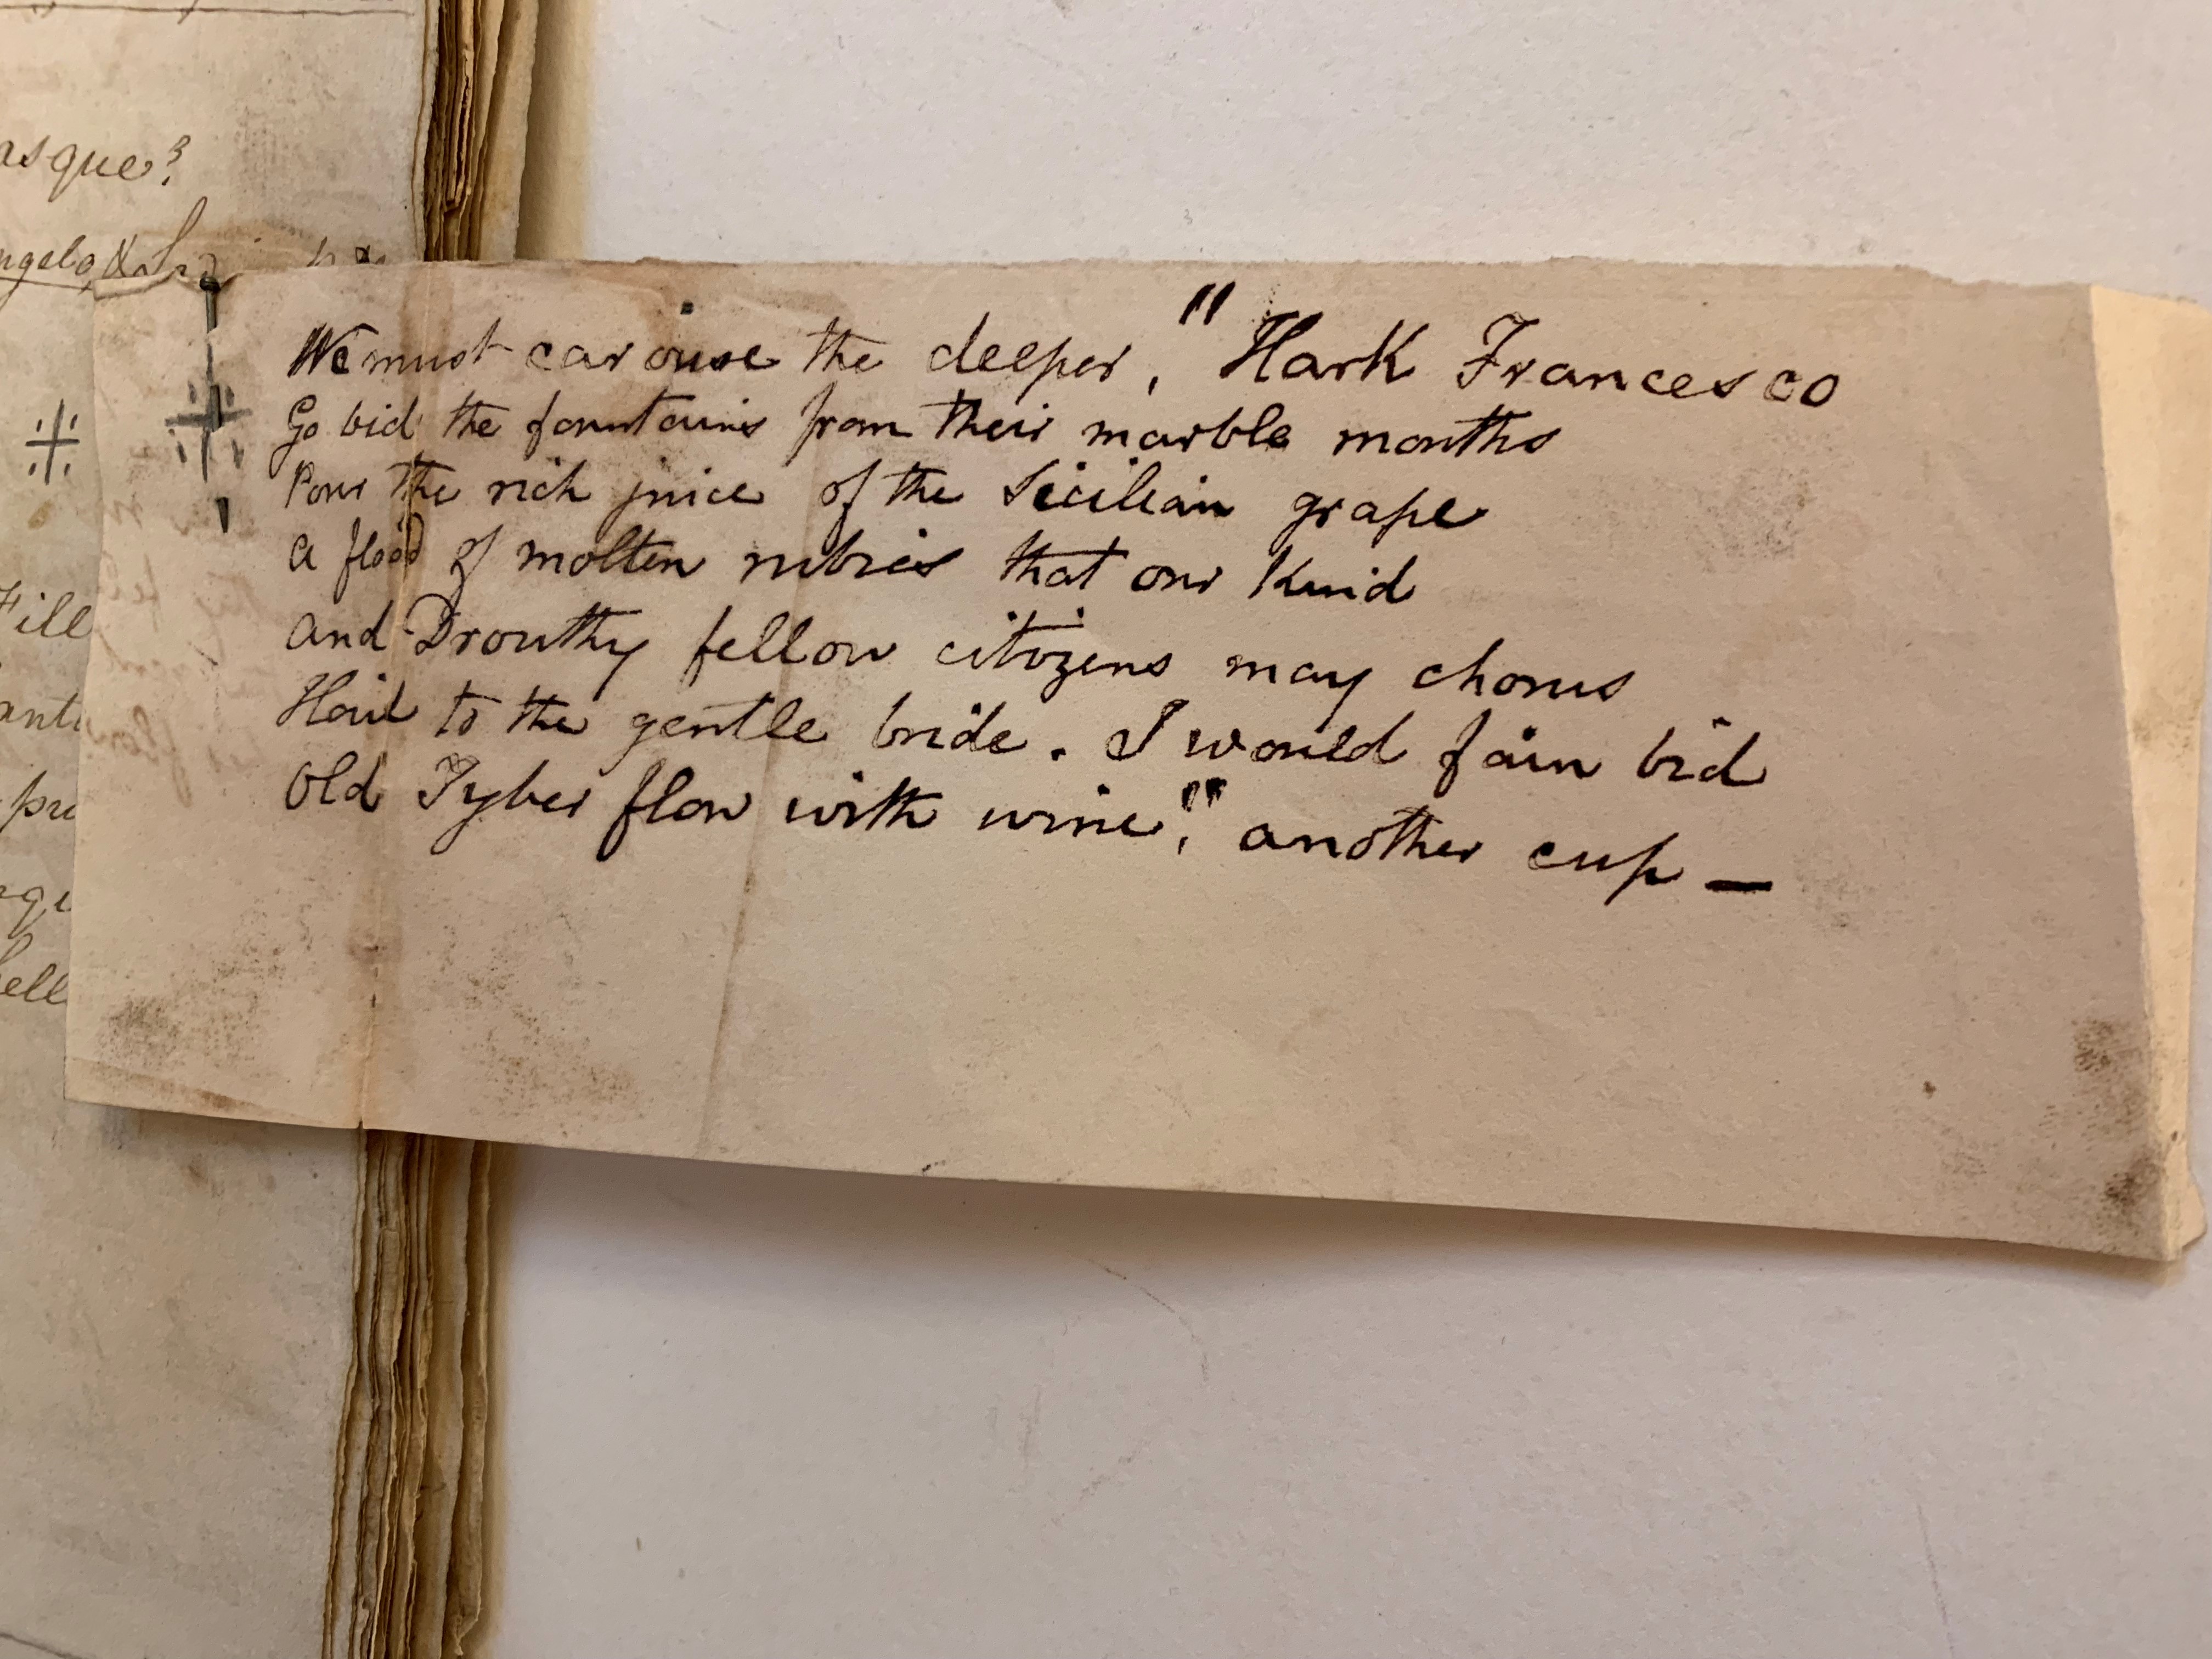 asque?
ngelo, &
We must carouse the deeper, "Hark Francesco
Go bid the fountains from their marble mouths
Pour the rich juice of the Sicilian grape
A flood of molten rubies that our Kind
And Drouthy fellow citizens may chorus
Hail to the gentle bride. I would fain bid
Old Tyber flow with wine," another cup —
ill
ant
pu
ell